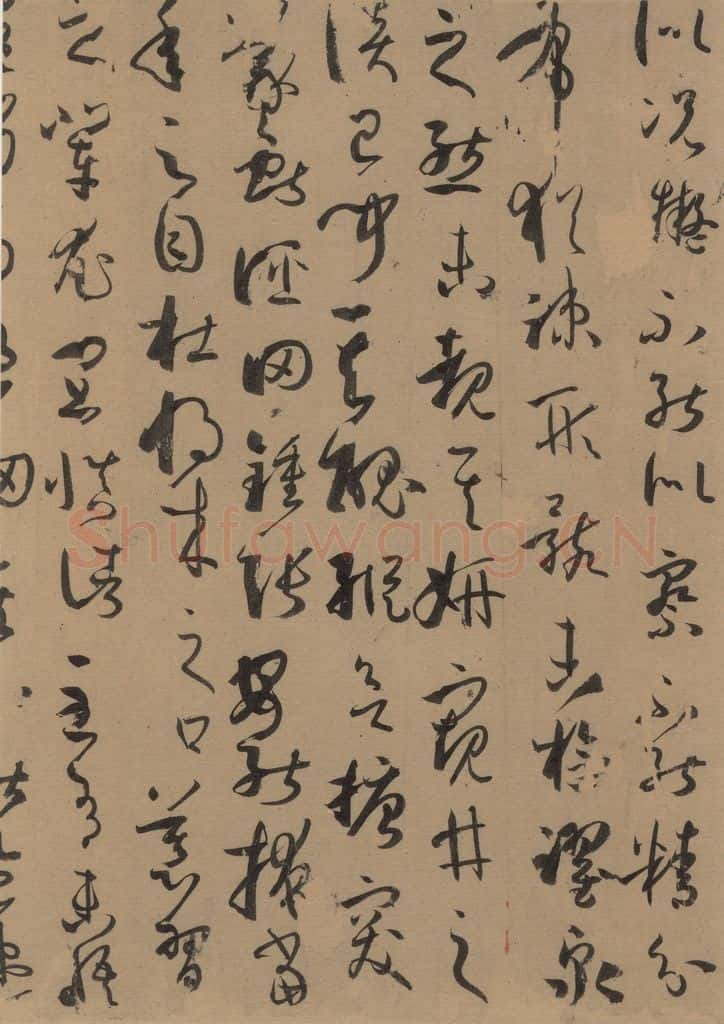 似況擬不能似察不能精分
布猶疎形骸未檢躍泉
之態未覩其妍窺井之
談已聞其醜縱欲搪突
羲獻誣罔鍾張安能掩當
年之目杜將來之口慕習
之輩尤宜慎諸至有未悟
Shufawang.CN